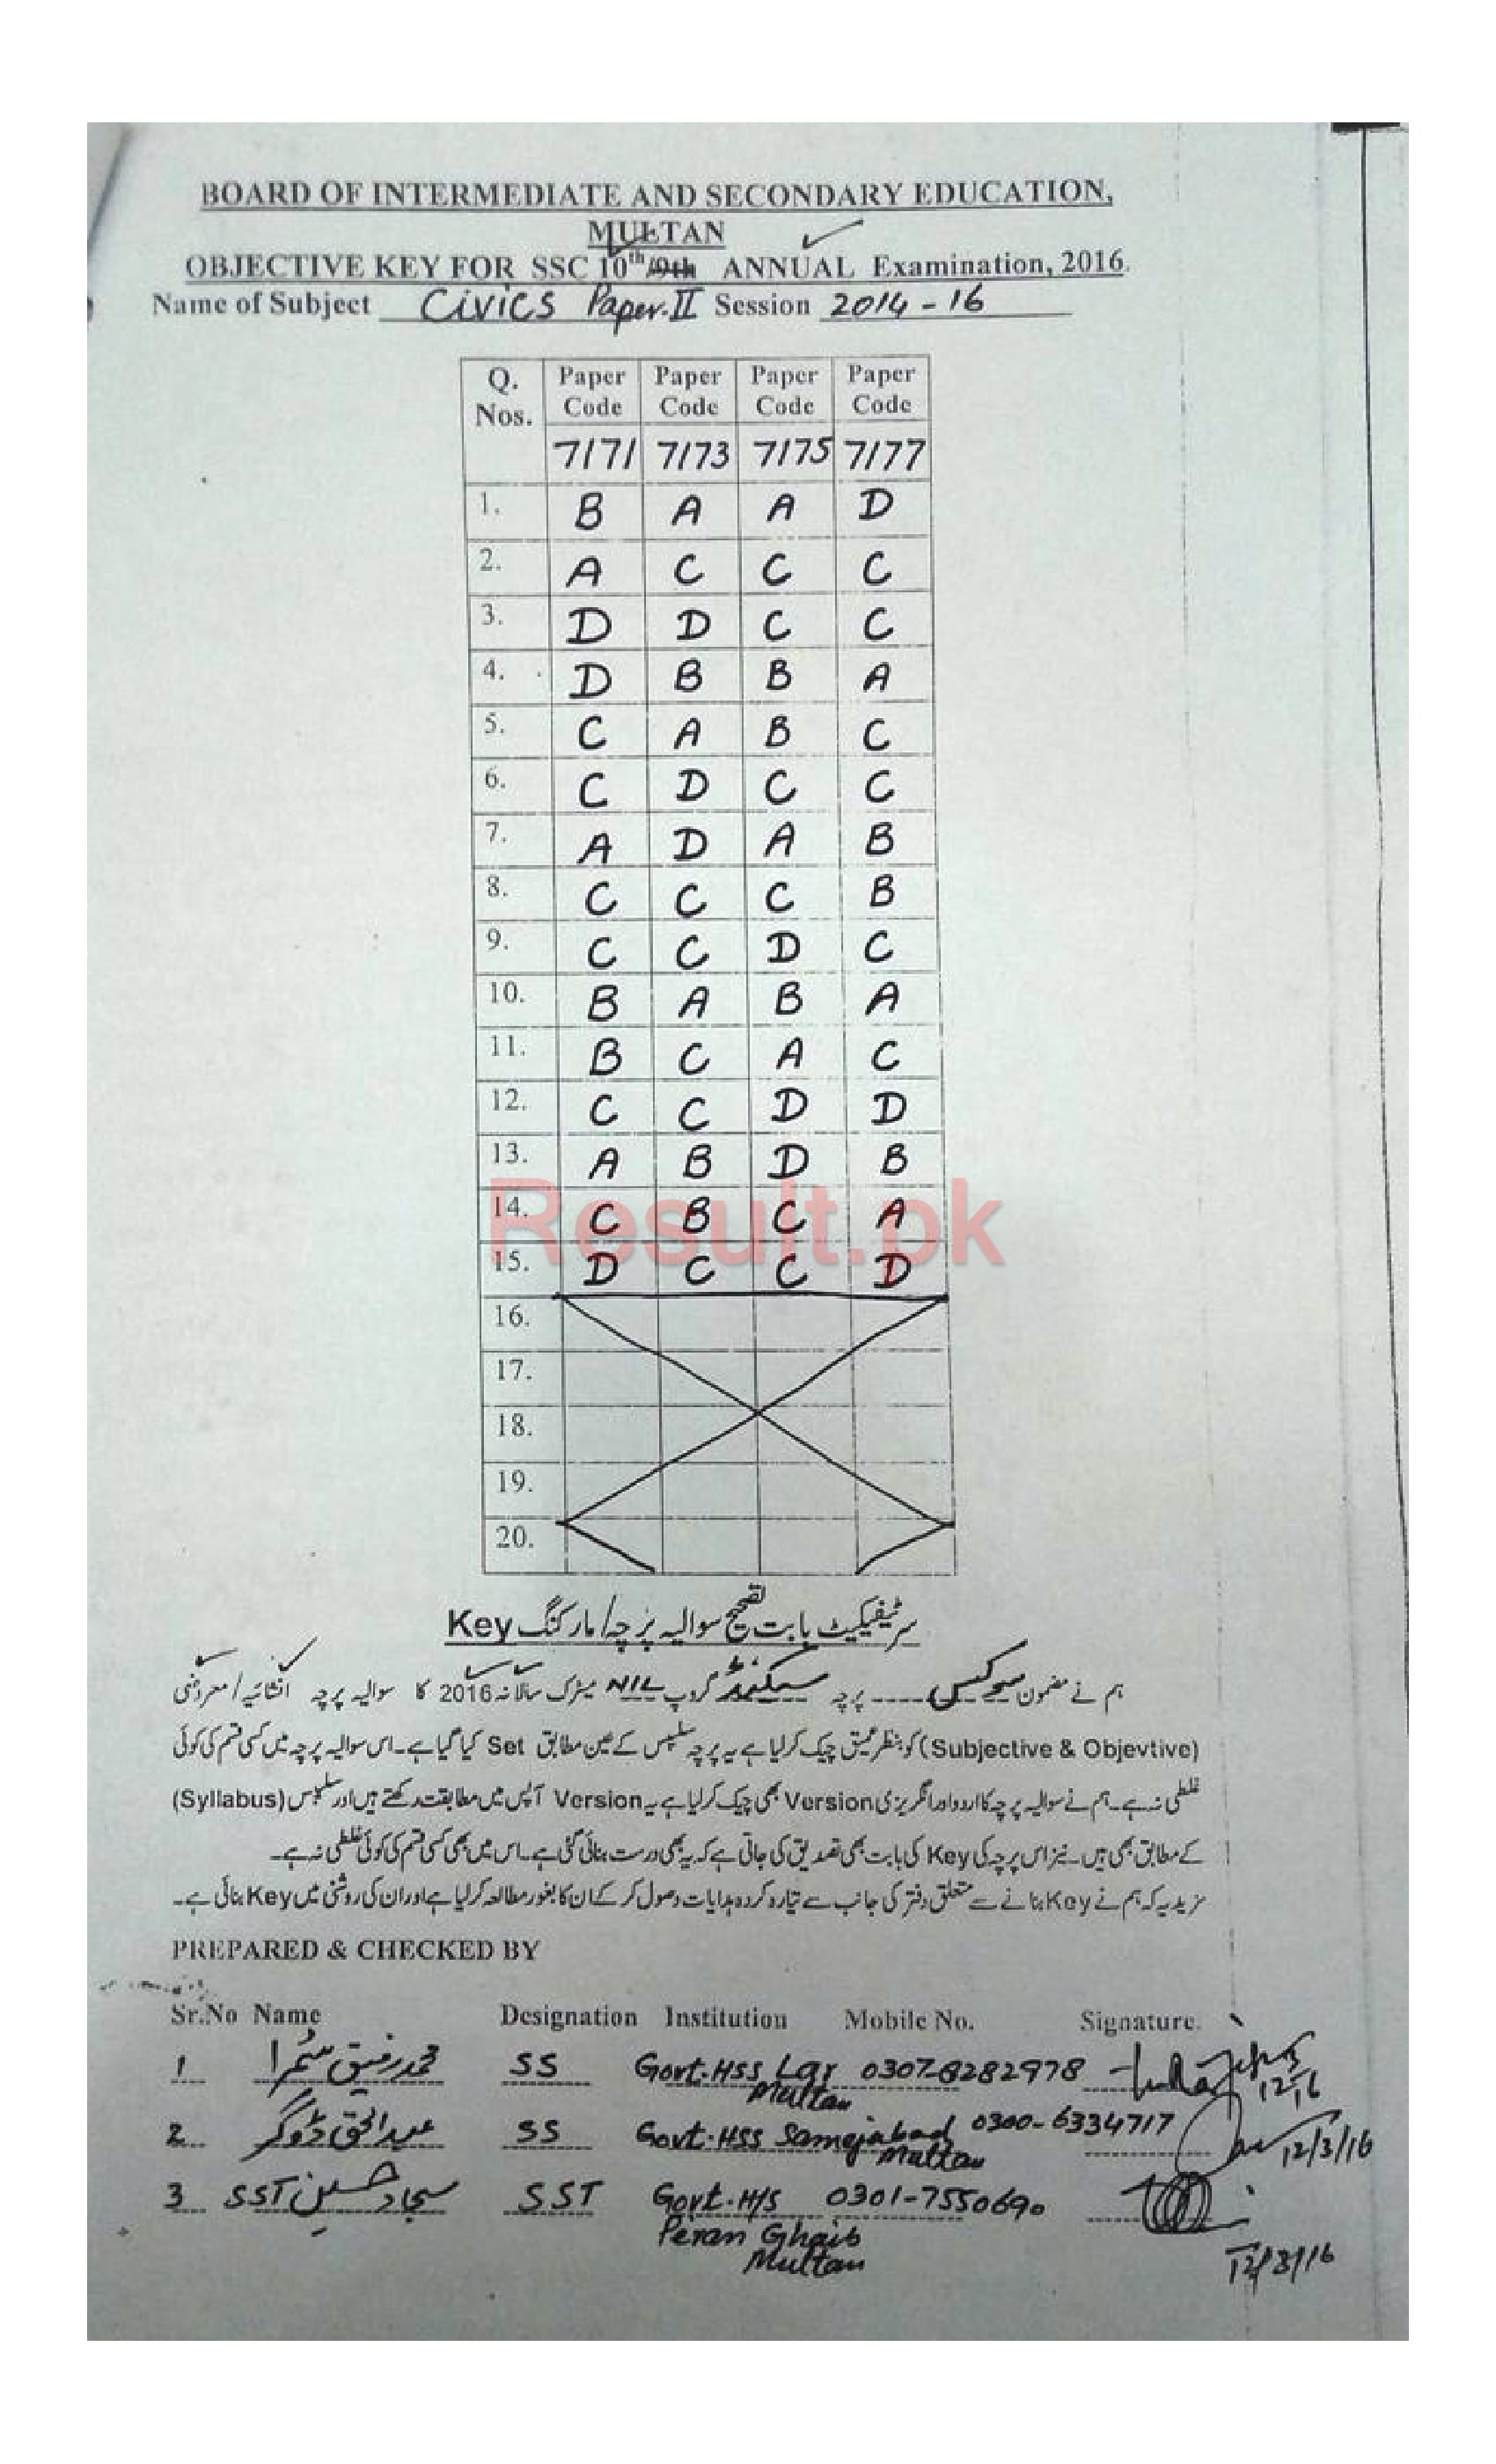 BOARD OF INTERMEDIATE AND SECONDARY EDUCATION,
MULTAN
OBJECTIVE KEY FOR SSC 10th/9th ANNUAL Examination, 2016.
Name of Subject Civics Paper-II Session 2014-16
Q. Nos. Paper Code Paper Code Paper Code Paper Code
7171 7173 7175 7177
1. B A A D
2. A C C C
3. D D C C
4. D B B A
5. C A B C
6. C D C C
7. A D A B
8. C C C B
9. C C D C
10. B A B A
11. B C A C
12. C C D D
13. A B D B
14. C B C A
15. D C C D
16.
17.
18.
19.
20.
Result.pk
سرٹیفیکیٹ بابت تصحیح سوالیہ پرچہ/مارکنگ Key
ہم نے مضمون سوکس پرچہ سیکنڈ گروپ NIL میٹرک سالانہ 2016 کا سوالیہ پرچہ انشائیہ/معروضی
(Subjective & Objevtive) کو بنظر عمیق چیک کرلیا ہے یہ پرچہ سلیبس کے عین مطابق Set کیا گیا ہے۔ اس سوالیہ پرچہ میں کسی قسم کی کوئی
غلطی نہ ہے۔ ہم نے سوالیہ پرچہ کا اردو اور انگریزی Version بھی چیک کرلیا ہے یہ Version آپس میں مطابقت رکھتے ہیں اور سلیبس (Syllabus)
کے مطابق بھی ہیں۔ نیز اس پرچہ کی Key کی بابت بھی تصدیق کی جاتی ہے کہ یہ بھی درست بنائی گئی ہے۔ اس میں بھی کسی قسم کی کوئی غلطی نہ ہے۔
مزید یہ کہ ہم نے Key بنانے سے متعلق دفتر کی جانب سے تیار کردہ ہدایات وصول کر کے ان کا بغور مطالعہ کرلیا ہے اور ان کی روشنی میں Key بنائی ہے۔
PREPARED & CHECKED BY
Sr.No Name Designation Institution Mobile No. Signature.
1 محمد رفیق سمرا SS Govt. HSS Lar Multan 0307-8282978
12/3/16
2 عبدالحق ڈوگر SS Govt. HSS Samejabad Multan 0300-6334717
12/3/16
3 سجاد حسین SST SST Govt. H/S Peran Ghaib Multan 0301-7550690
12/3/16